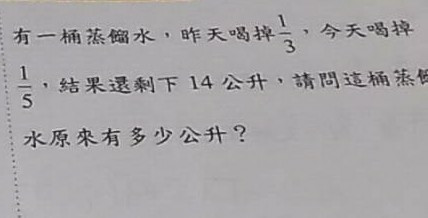 有一桶蒸餾水，昨天喝掉1/3，今天喝掉
1/5，結果還剩下 14 公升，請問這桶蒸
水原來有多少公升？